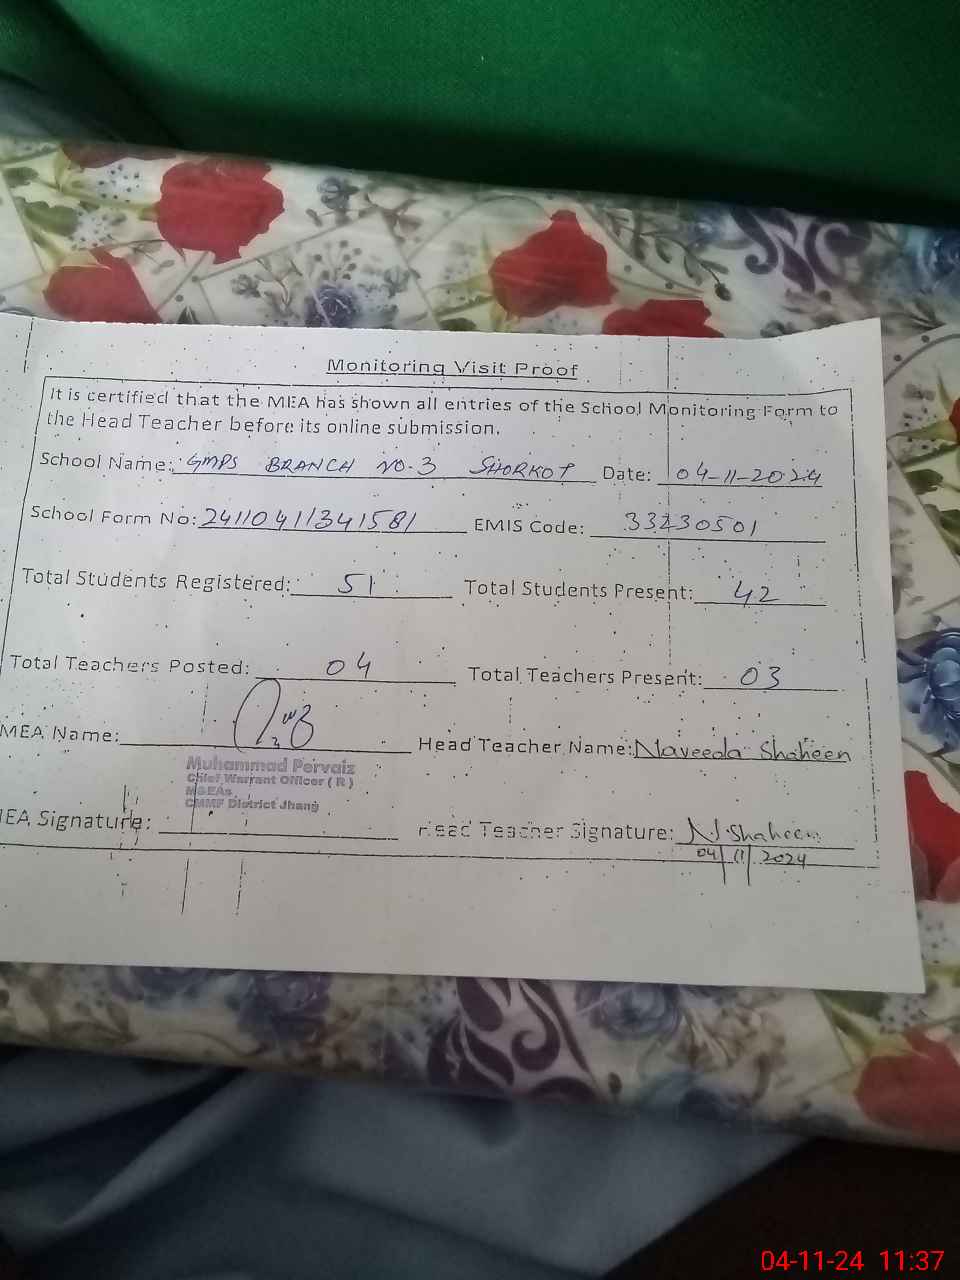 Monitoring Visit Proof
It is certified that the MEA has shown all entries of the School Monitoring Form to
the Head Teacher before its online submission.
School Name: GMPS BRANCH NO.3 SHORKOT Date: 04-11-2024
School Form No: 2411041341581 EMIS Code: 33230501
Total Students Registered: 51 Total Students Present: 42
Total Teachers Posted: 04 Total Teachers Present: 03
MEA Name: Head Teacher Name: Naveeda Shaheen
Muhammad Pervaiz
Chief Warrant Officer ( R )
M&EAs
CMMF District Jhang
MEA Signature: Head Teacher Signature: N.Shaheen
04/11/2024
04-11-24 11:37